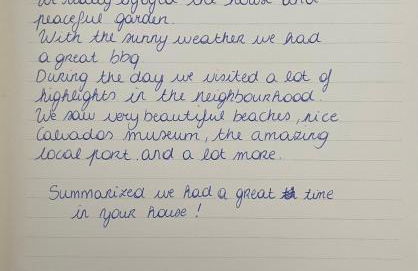 We really enjoyed the house and
peaceful garden.
With the sunny weather we had
a great bbq
During the day we visited a lot of
highlights in the neighbourhood.
We saw very beautiful beaches, nice
Calvados museum, the amazing
local port and a lot more.
Summarized we had a great time
in your house!